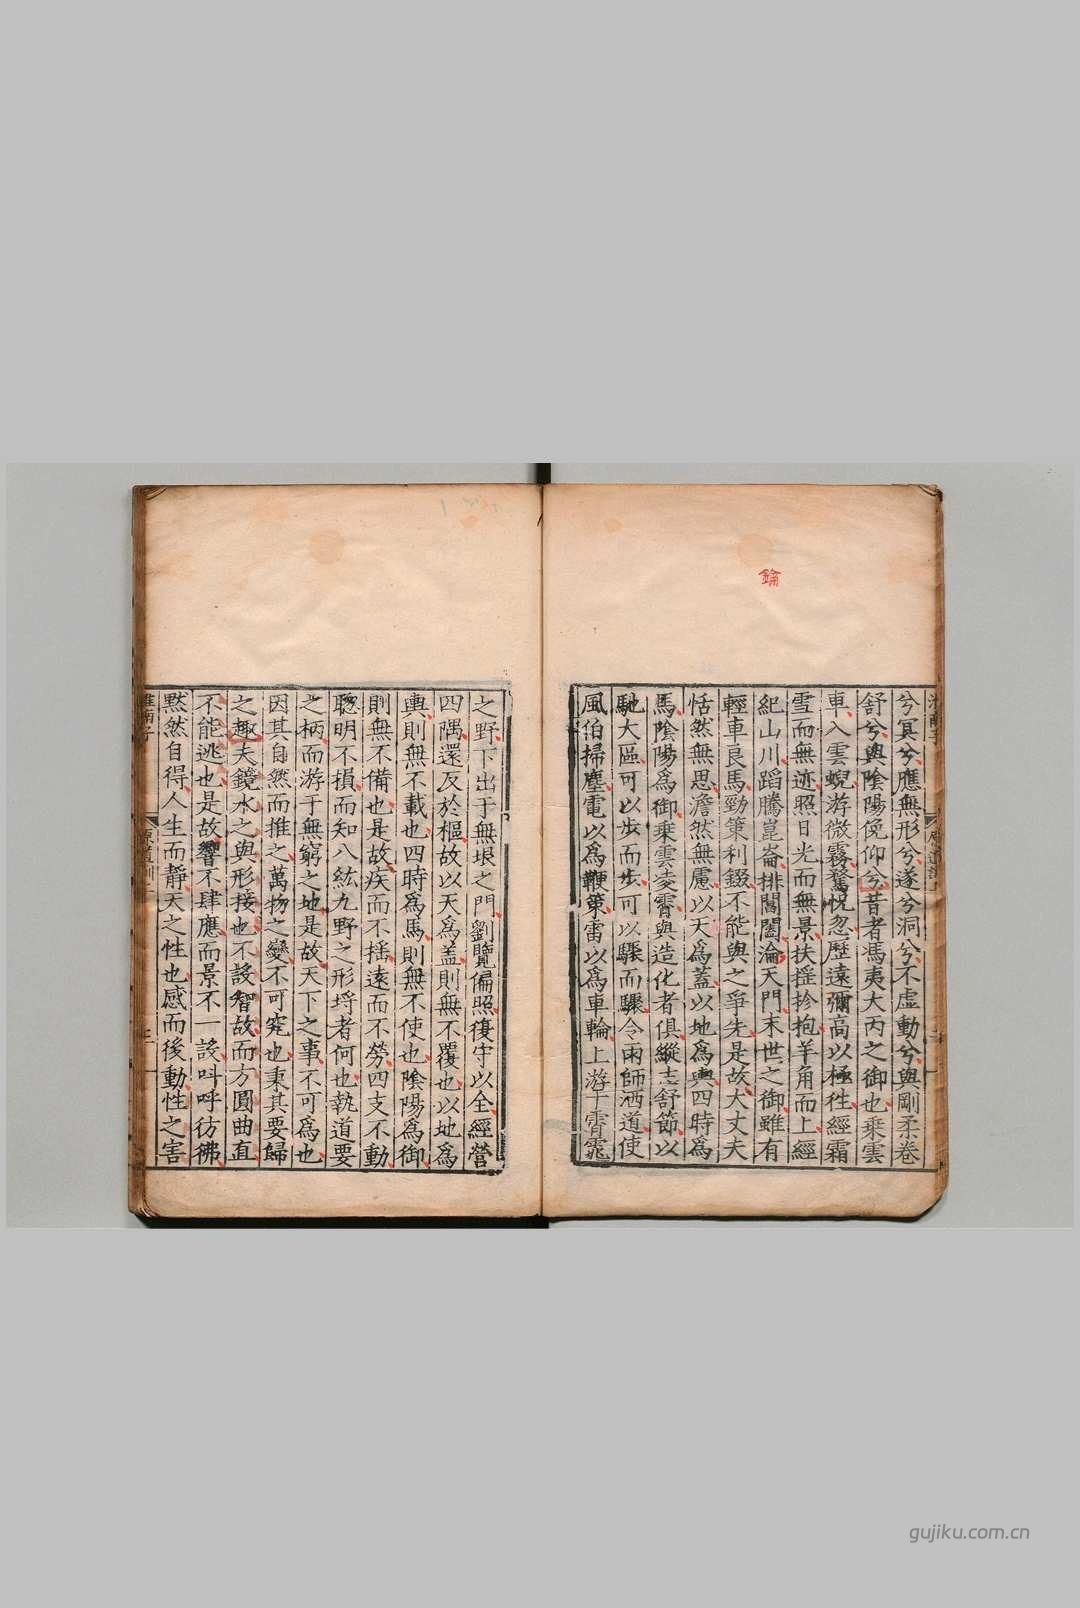 鑰
兮冥兮應無形兮遂兮洞兮不虛動兮與剛柔卷
舒兮與陰陽俛仰兮昔者馮夷大丙之御也乘雲
車入雲蜺游微霧騖怳忽歷遠彌高以極往經霜
雪而無迹照日光而無景扶搖抮抱羊角而上經
紀山川蹈騰崑崙排閶闔淪天門末世之御雖有
輕車良馬勁策利錣不能與之爭先是故大丈夫
恬然無思澹然無慮以天為蓋以地為輿四時為
馬陰陽為御乘雲凌霄與造化者俱縱志舒節以
馳大區可以步而步可以驟而驟令雨師洒道使
風伯掃塵電以為鞭策雷以為車輪上游于霄雿
之野下出于無垠之門劉覽偏照復守以全經營
四隅還反於樞故以天為蓋則無不覆也以地為
輿則無不載也四時為馬則無不使也陰陽為御
則無不備也是故疾而不搖遠而不勞四支不動
聰明不損而知八紘九野之形埒者何也執道要
之柄而游于無窮之地是故天下之事不可為也
因其自然而推之萬物之變不可究也秉其要歸
之趣夫鏡水之與形接也不設智故而方圓曲直
不能逃也是故響不肆應而景不一設呌呼彷彿
黙然自得人生而靜天之性也感而後動性之害
淮南子
原道訓上
gujiku.com.cn